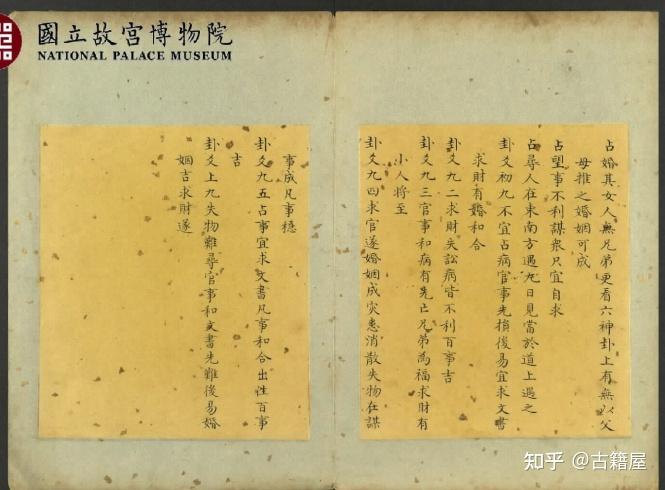 國立故宮博物院
NATIONAL PALACE MUSEUM
占婚其女人無兄弟更看六神卦上有無以父
母推之婚姻可成
占望事不利謀衆只宜自求
占尋人在東南方過九日見當於道上遇之
卦爻初九不宜占病官事先損後易宜求文書
求財有婚和合
卦爻九二求財失訟病皆不利百事吉
卦爻九三官事和病有先亡兄弟為福求財有
小人將至
卦爻九四求官遂婚姻成灾患消散失物在謀
事成凡事穩
卦爻九五占事宜求文書凡事和合出往百事
吉
卦爻上九失物難尋官事和文書先難後易婚
姻吉求財遂
知乎 @古籍屋